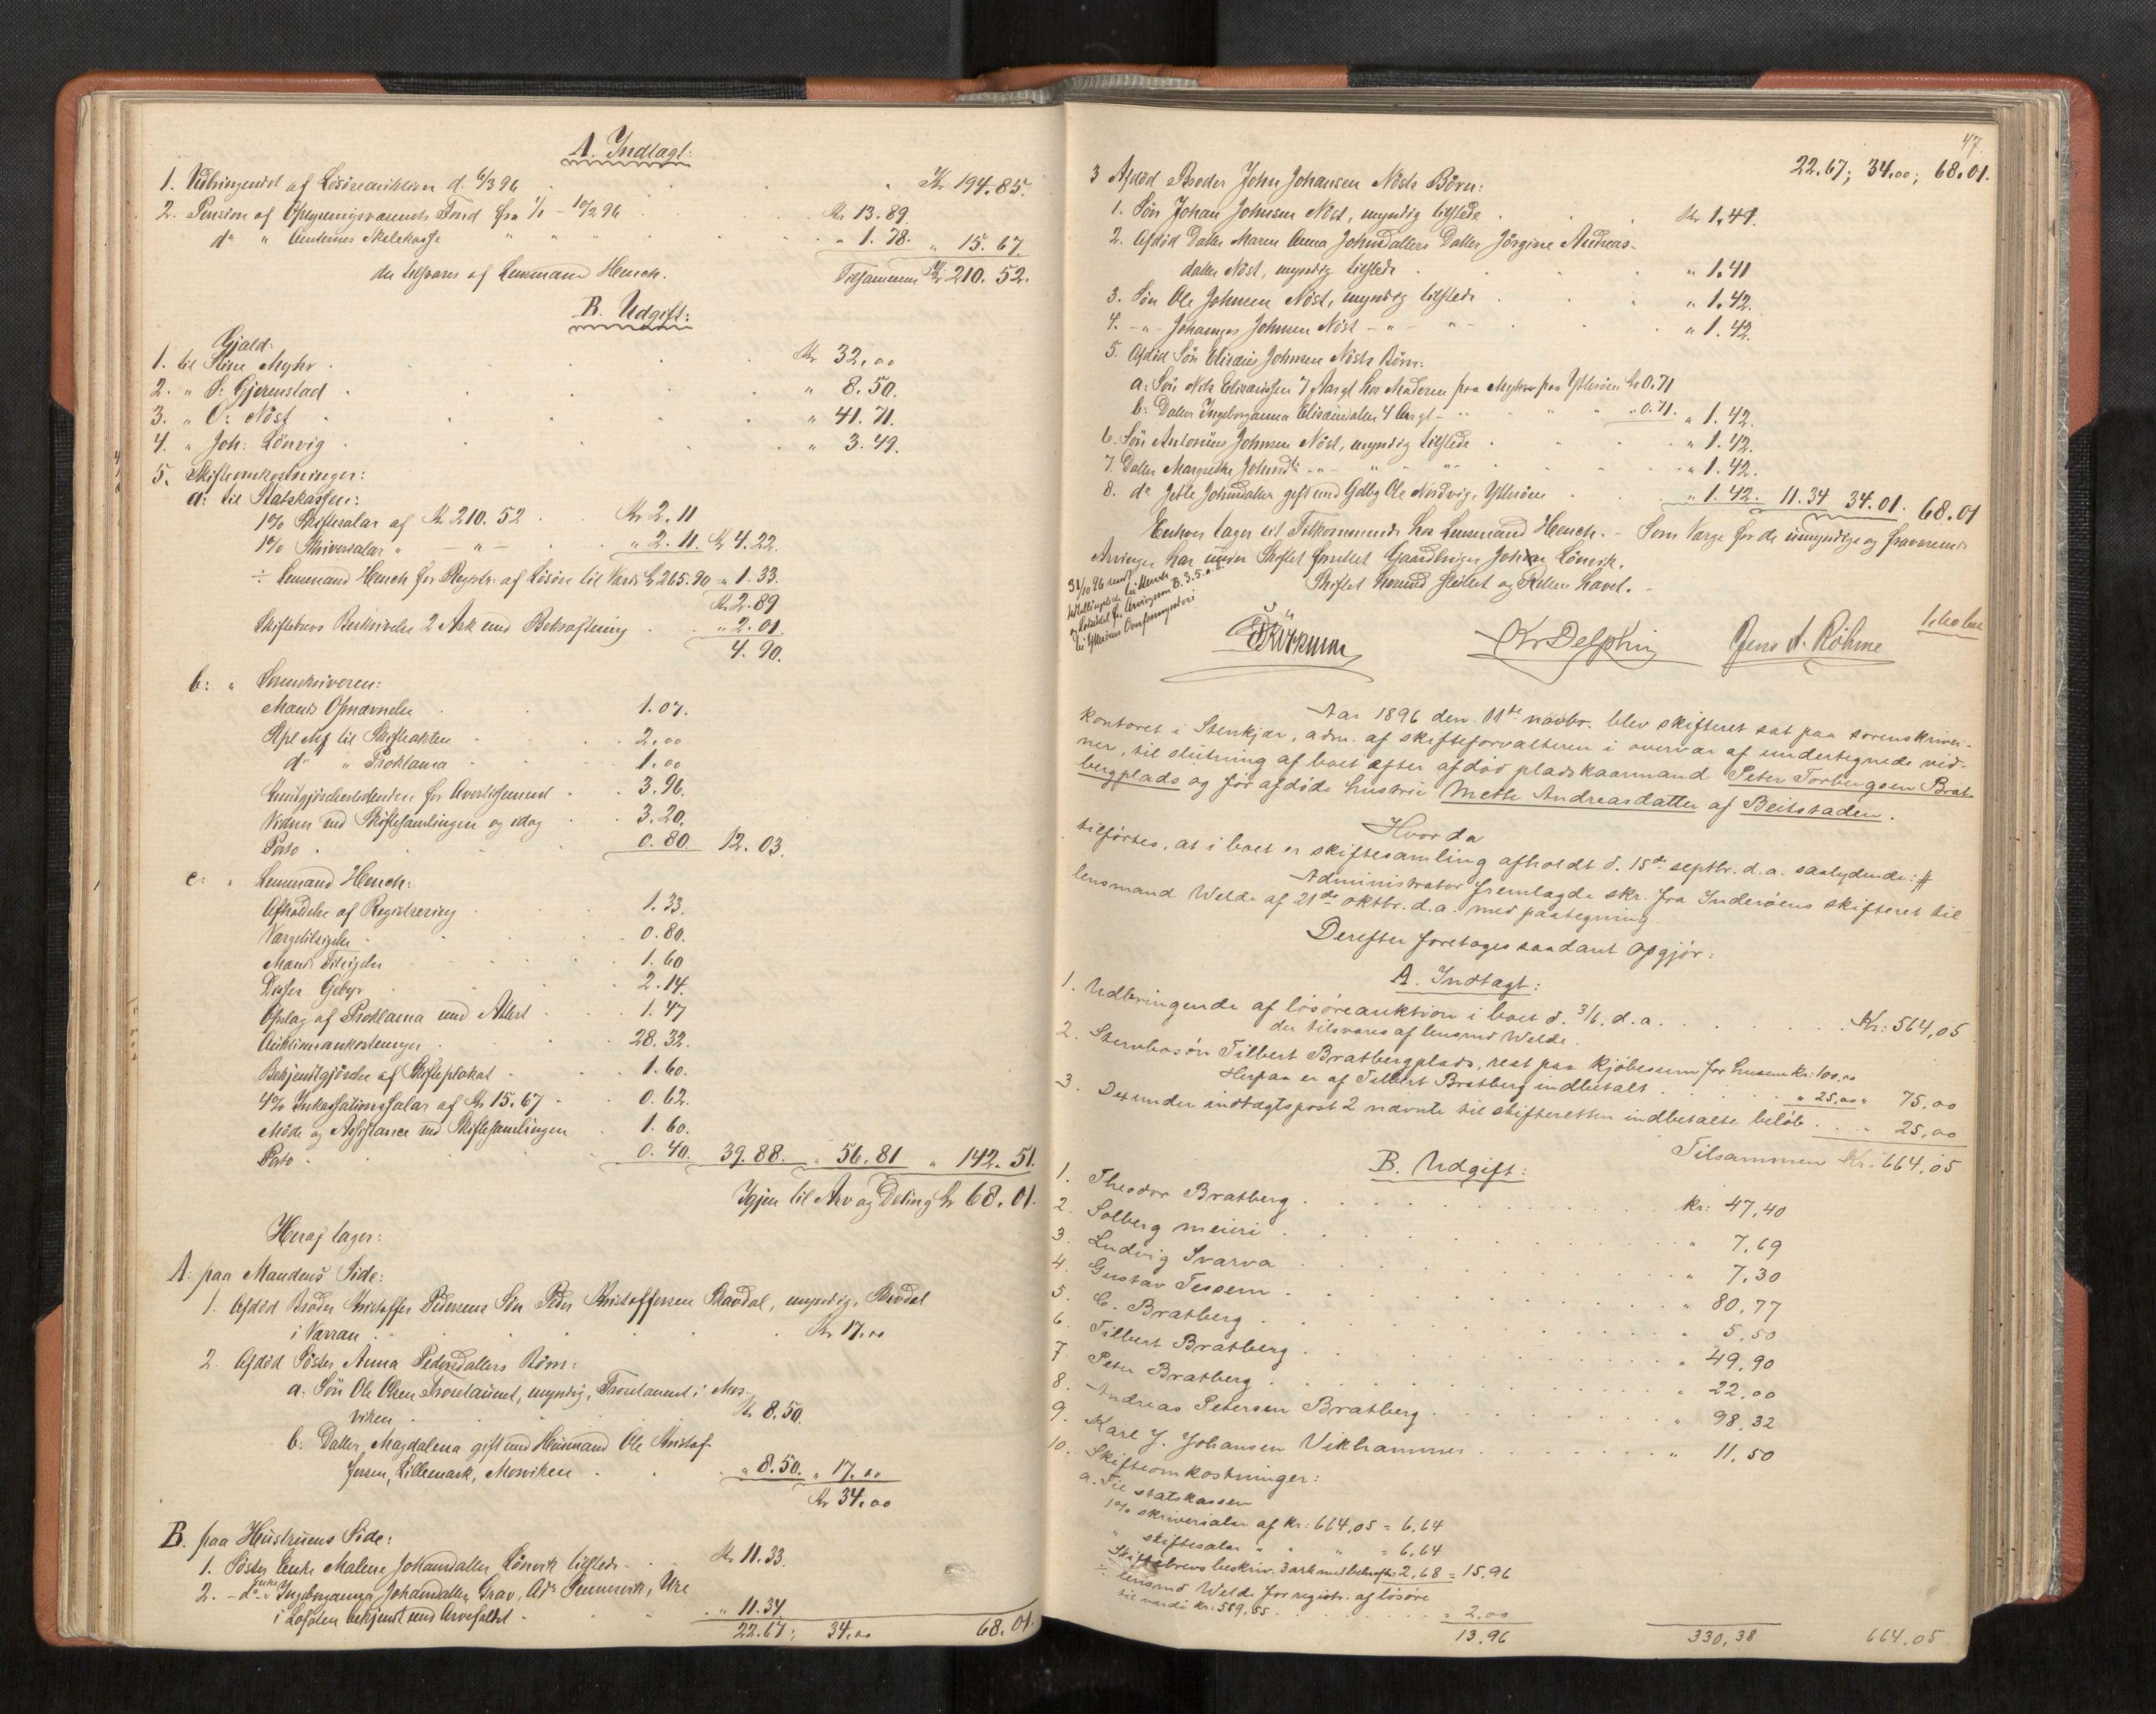 A. Indtagt:
1. Udbringendet af Løsøreauktion d. 6/3 96 . . . Kr 194.85.
2. Pension af Oplysningsvæsenets Fond fra 1/1 - 10/2 96 . . Kr 13.89.
do " Amtets Skolekasse " " " " . . " 1.78. " 15.67.
der tilsvares af Lensmand Hench. Tilsammen Kr 210.52.
B. Udgift:
Gjæld:
1. til Stine Myhr . . . Kr 32.00
2. " S: Gjerenstad . . . " 8.50.
3. " O: Nöst . . . " 41.71.
4. " Joh: Lönvig . . . " 3.49.
5. Skifteomkostninger:
a: til Statskassen:
1% Skiftesalar af Kr 210.52 . Kr 2.11
1% Skriversalar " — " — . " 2.11. Kr 4.22.
÷ Lensmand Hench for Registr: af Løsøre til Værdi Kr 265.90 = " 1.33.
Kr 2.89
Skiftebrevs Beskrivelse 2 Ark med Bekræftning . . " 2.01.
4.90.
b: " Sorenskriveren:
Mænds Opnævnelse . 1.07.
Kpl Mf til Skifteakten . 2.00
do " Proklama . 1.00
Kundgjörelsestidenden for Avertissement . 3.96.
Vidner ved Skiftesamlingen og idag . 3.20.
Porto . 0.80. 12.03.
c: " Lensmand Hench:
Afholdelse af Registrering . 1.33.
Værgetilsigelse . 0.80.
Mænds Tilsigelse . 1.60
Disses Gebyr . 2.14.
Opslag af Proklama med Attest . 1.47
Auktionsomkostninger . 28.32.
Bekjendtgjörelse af Skifteplakat . 1.60.
4% Inkassationssalar af Kr 15.67 . 0.62.
Möde og Assistance ved Skiftesamlingen . 1.60.
Porto . 0.40. 39.88. " 56.81 " 142.51.
Igjen til Arv og Deling Kr 68.01.
Heraf tager:
A: paa Mandens Side:
1. Afdöd Broder Kristoffer Pedersens Sön Peder Kristoffersen Skavdal, myndig, Skavdal
i Værran . . . Kr 17.00
2. Afdöd Söster Anna Pedersdatters Börn:
a: Sön Ole Olsen Troselaunet, myndig, Troselaunet i Mos-
viken . . . Kr 8.50.
b: Datter Magdalena gift med Husmand Ole Kristof-
fersen, Lillemark, Mosviken . . " 8.50. " 17.00
Kr 34.00
B. paa Hustruens Side:
1. Söster Enke Malene Johansdatter Lönvik tilstede . . Kr 11.33.
2. - do - enke Ingeboranna Johansdatter Grav, Ads Sennesvik, Ure
i Lofoten bekjendt med Arvefaldet . . . " 11.34
22.67; 34.00 68.01.
47.
22.67; 34.00; 68.01.
3 Afdöd Broder John Johansen Nösts Börn:
1. Sön Johan Johnsen Nöst, myndig tilstede . . Kr 1.41.
2. Afdöd Datter Maren Anna Johnsdatters Datter Jörgine Andreas-
datter Nöst, myndig tilstede . . " 1.41
3. Sön Ole Johnsen Nöst, myndig tilstede . . " 1.42.
4. - " - Johannes Johnsen Nöst - " - " - . . " 1.42.
5. Afdöd Sön Elisæus Johnsen Nösts Börn:
a: Sön Nils Elisæussen 7 Aar gl. hos Moderen paa Myhr paa Ytterøen Kr 0.71
b: Datter Ingeboranna Elisæusdatter 4 Aar gl - " - " " " 0.71. " 1.42.
6. Sön Antonius Johnsen Nöst, myndig tilstede . . " 1.42.
7. Datter Margrethe Johnsdtr - " - " - " - . . " 1.42.
8. do Jette Johnsdatter gift med Gdbg Ole Nordvig, Ytterøen . " 1.42. 11.34 34.01. 68.01
Enhver tager sit Tilkommende hos Lensmand Hench. - Som Værge for de umyndige og fraværende
Arvinger har under Skiftet fungeret Gaardbruger Johan Lönvik.
Skiftet hermed sluttet og Retten hævet. -
Kr Delphin Jens A. Röhme
Aar 1896 den 11te novbr. blev skifteret sat paa sorenskriver-
kontoret i Stenkjær, adm. af skifteforvalteren i overvær af undertegnede vid-
ner, til slutning af boet efter afdød pladskaarmand Peter Torbergsen Brat-
bergplads og før afdøde hustru Mette Andreasdatter af Beitstaden.
Hvorda
tilførtes, at i boet er skiftesamling afholdt d. 15de septbr. d. a. saalydende: #
Administrator fremlagde skr. fra Inderøens skifteret til
lensmand Welde af 21de oktbr. d. a. med paategning.
Derefter foretoges saadant opgjør:
A. Indtagt:
1. Udbringende af løsøreauktion i boet d. 3/6. d. a. . . . Kr: 564,05
der tilsvares af lensmd Welde.
2. Stervbosøn Tilbert Bratbergplads, rest paa kjøbesum for husene kr: 100,00
Herpaa er af Tilbert Bratberg indbetalt . . . " 25,00 " 75,00
3. Det under indtægtspost 2 nævnte til skifteretten indbetalte beløb . . " 25,00
Tilsammen Kr. 664,05
B. Udgift:
1. Theodor Bratberg . . . kr: 47,40
2. Solberg meieri . . . " 7,69
3. Ludvig Svarva . . . " 7,30
4. Gustav Tessem . . . " 80,77
5. C. Bratberg . . . " 5,50
6. Tilbert Bratberg . . . " 49,90
7. Peter Bratberg . . . " 22,00
8. Andreas Petersen Bratberg . . . " 98,32
9. Karl J. Johansen Vikhammer . . . " 11,50
10. Skifteomkostninger:
a. Til statskassen
1% skriversalar af kr: 664,05 = 6,64
" skiftesalar " " " = 6,64
Skiftebrevs beskriv. 3 ark med bekræftn: 2,68 = 15,96
÷ lensmd Welde for registr. af løsøre
til værdi kr: 589,55 . . . = 2,00
13,96 330,38 664,05